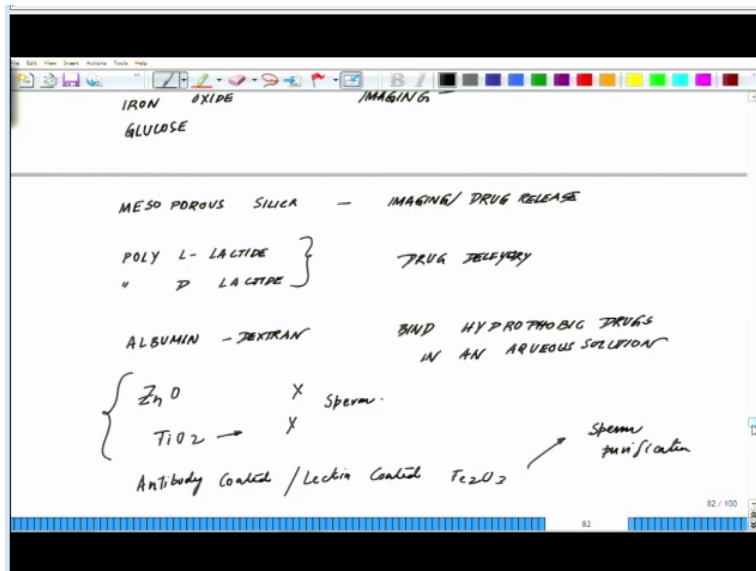 File Edit View Insert Actions Tools Help
IRON OXIDE IMAGING -
GLUCOSE
MESO POROUS SILICA - IMAGING / DRUG RELEASE
POLY L- LACTIDE } DRUG DELEVERY
" D LACTIDE
ALBUMIN - DEXTRAN BIND HYDROPHOBIC DRUGS
IN AN AQUEOUS SOLUTION
ZnO X Sperm.
TiO2 → X
Antibody Coated / Lectin Coated Fe2O3 Sperm
purification
82 / 100
82